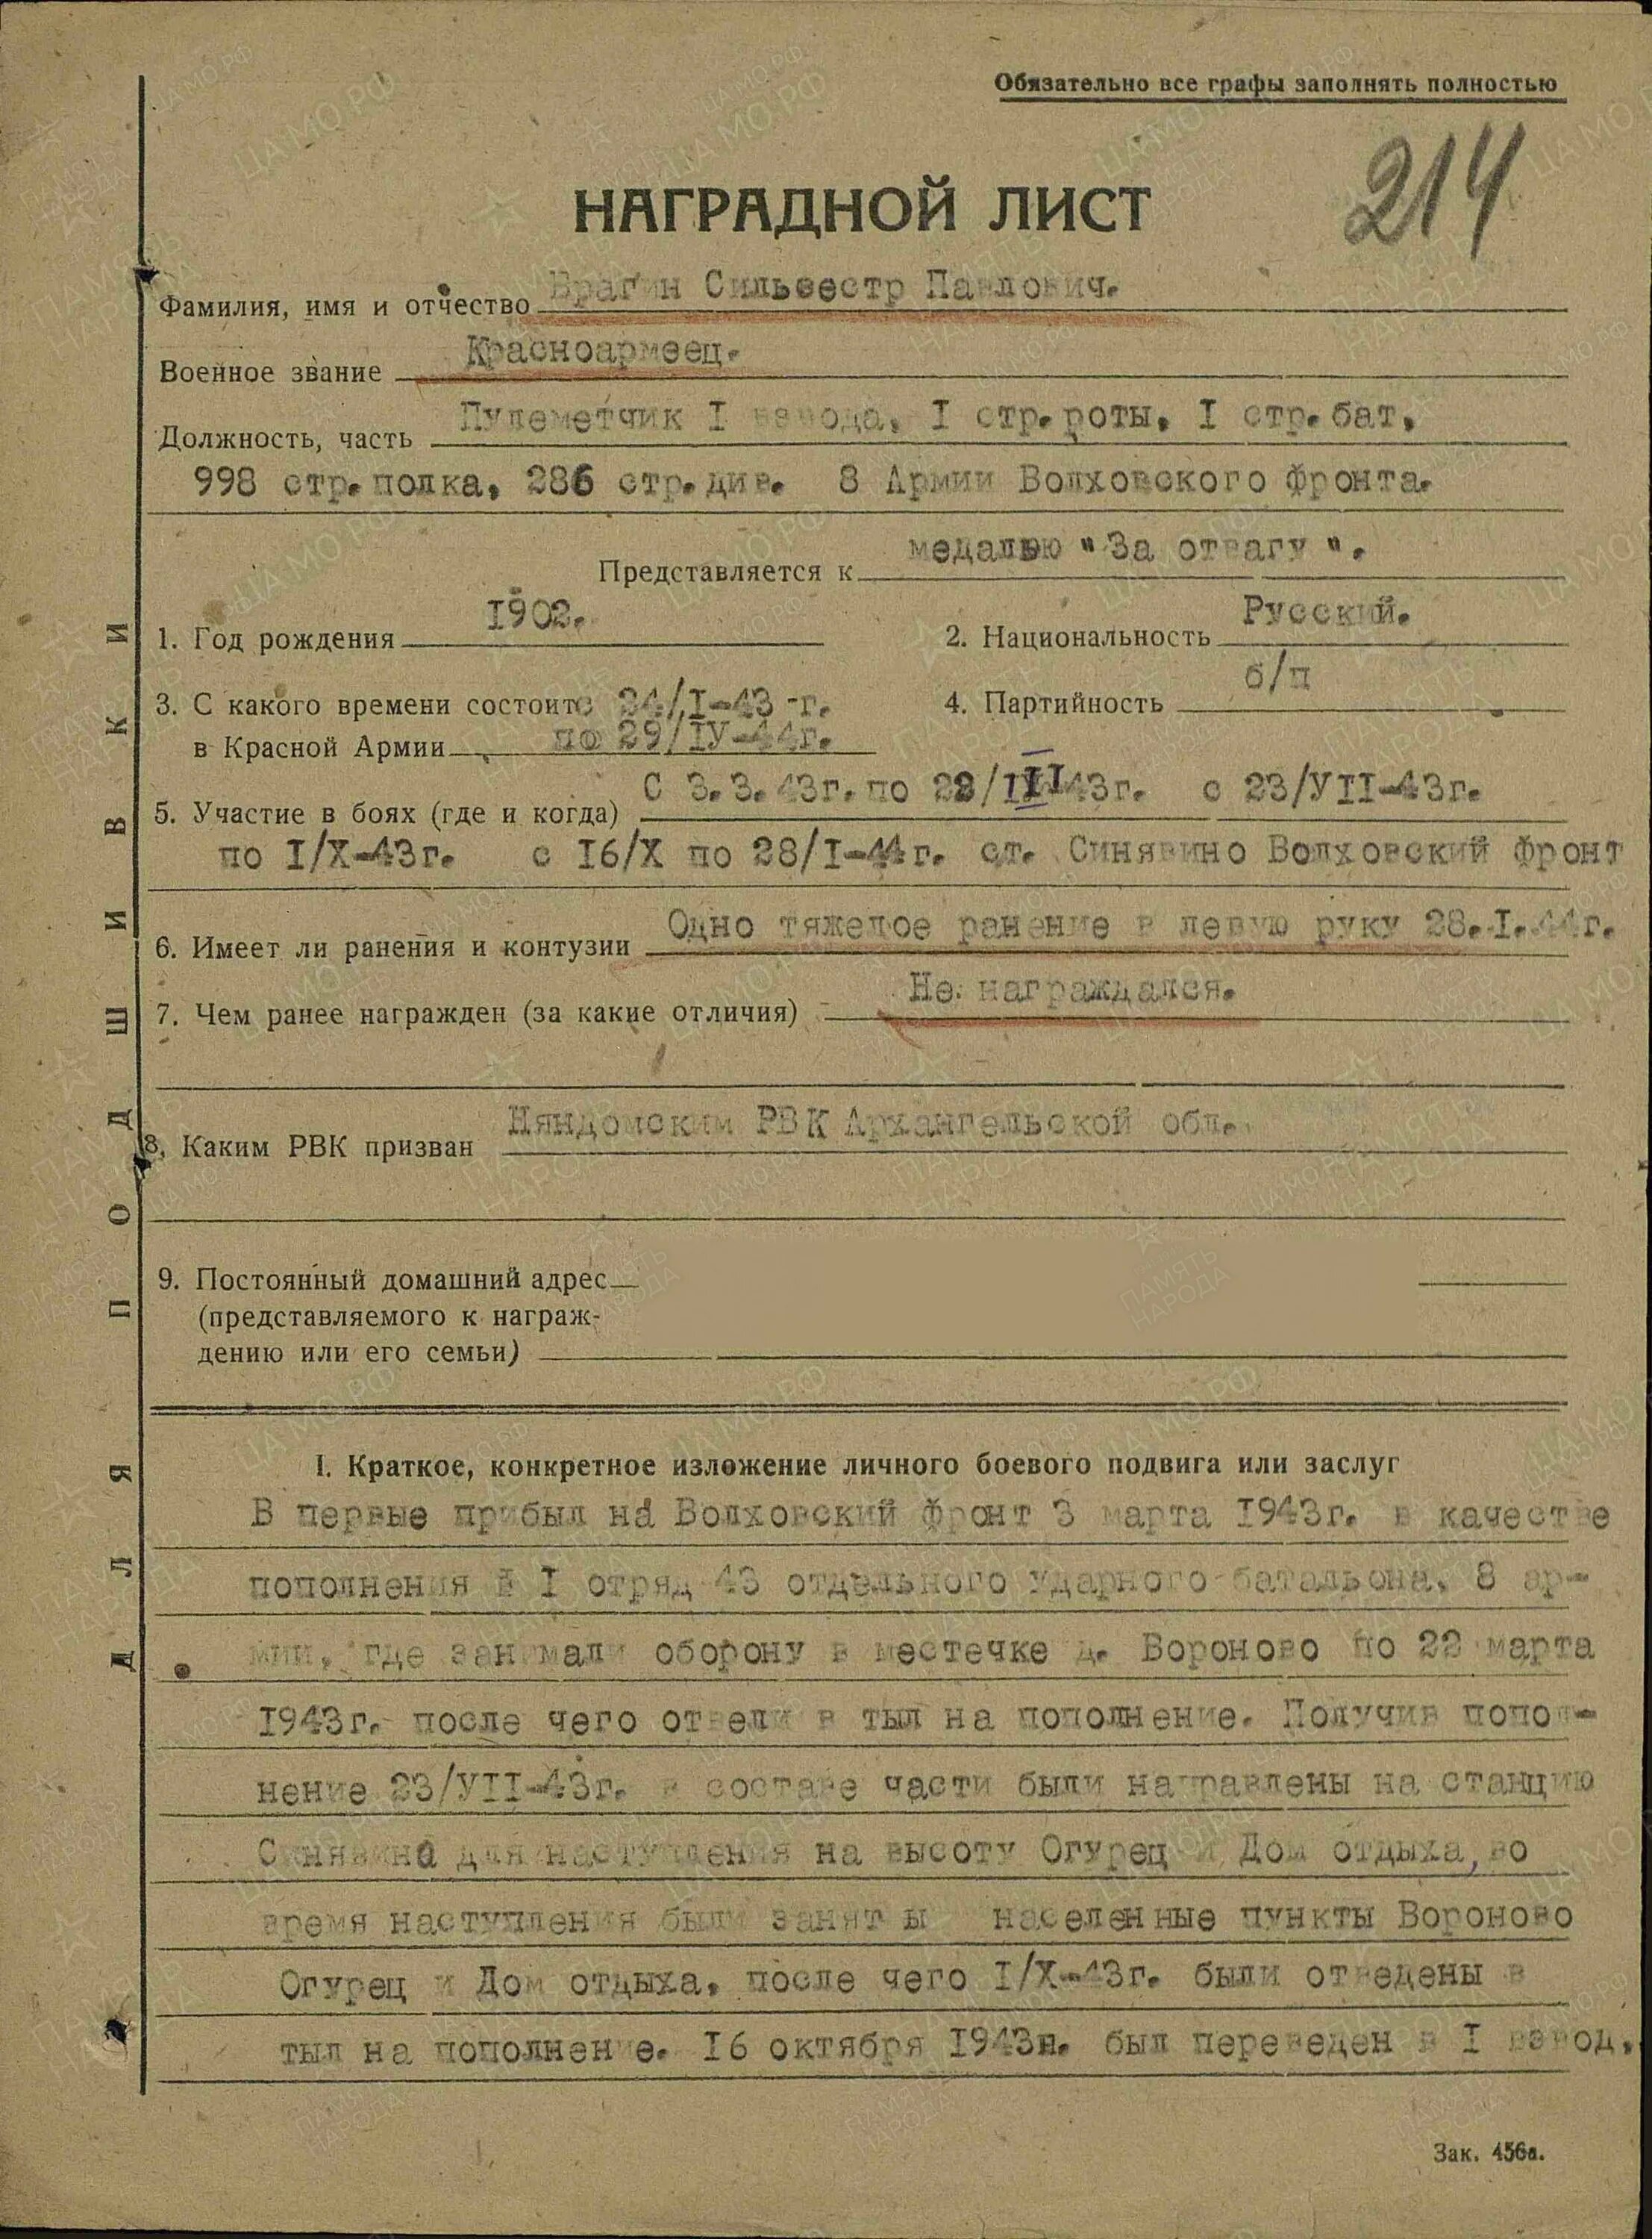 Обязательно все графы заполнять полностью
214
НАГРАДНОЙ ЛИСТ
Фамилия, имя и отчество Врагин Сильвестр Павлович.
Военное звание Красноармеец.
Должность, часть Пулеметчик I взвода, I стр.роты, I стр.бат,
998 стр.полка, 286 стр.див. 8 Армии Волховского фронта.
Представляется к медалью "За отвагу".
1. Год рождения 1902.
2. Национальность Русский.
3. С какого времени состоит с 24/I-43-г.
в Красной Армии по 29/IУ-44г.
4. Партийность б/п
5. Участие в боях (где и когда) С 3.3.43г. по 22/III 43г. с 23/УII-43г.
по I/X-43г. с 16/X по 28/I-44г. ст. Синявино Волховский фронт
6. Имеет ли ранения и контузии Одно тяжелое ранение в левую руку 28.I.44г.
7. Чем ранее награжден (за какие отличия) Не награждался.
8. Каким РВК призван Няндомским РВК Архангельской обл.
9. Постоянный домашний адрес
(представляемого к награж-
дению или его семьи)
I. Краткое, конкретное изложение личного боевого подвига или заслуг
В первые прибыл на Волховский фронт 3 марта 1943г. в качестве
пополнения в I отряд 43 отдельного ударного батальона, 8 ар-
мии, где занимали оборону в местечке д. Вороново по 22 марта
1943г. после чего отвели в тыл на пополнение. Получив попол-
нение 23/УII-43г. в составе части были направлены на станцию
Синявина для наступления на высоту Огурец и Дом отдыха, во
время наступления были занят ы населенные пункты Вороново
Огурец и Дом отдыха, после чего I/X-43г. были отведены в
тыл на пополнение. 16 октября 1943н. был переведен в I взвод,
ДЛЯ ПОДШИВКИ
Зак. 456а.
ПАМЯТЬ НАРОДА
ЦАМО.РФ